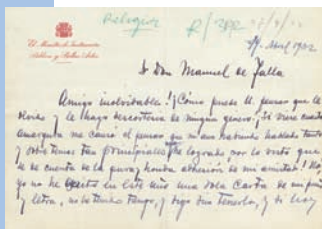 Religion
El Ministro de Instrucción
Pública y Bellas Artes
Abril 1932
Sr Don Manuel de Falla
Amigo inolvidable! ¡Cómo puede V. pensar que le
olvido y le hago de ningún género!
amargura me causó el pensar que ni aun habiendo hablado tanto
y sobre temas tan principales he logrado, por lo visto que
se dé cuenta de la pura y honda adhesión de mi amistad! No,
yo no he escrito en este año una sola carta de mi puño
y letra, no he tenido tiempo, y sigo sin tenerlo, y si hoy